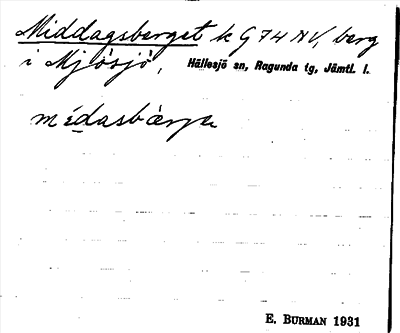 Middagsberget k G 74 NV, berg
i Mjösjö, Hällesjö sn, Ragunda tg, Jämtl. l.
médasbærje
E. BURMAN 1931